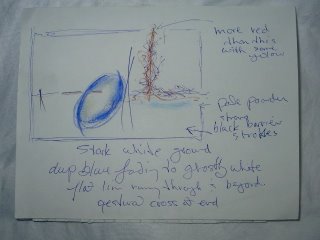 more red
than this
with some
yellow
pale powder
strong
black barrier
strokes
Stark white ground
deep blue fading to ghostly white
flat line runing through & beyond
gestural cross at end